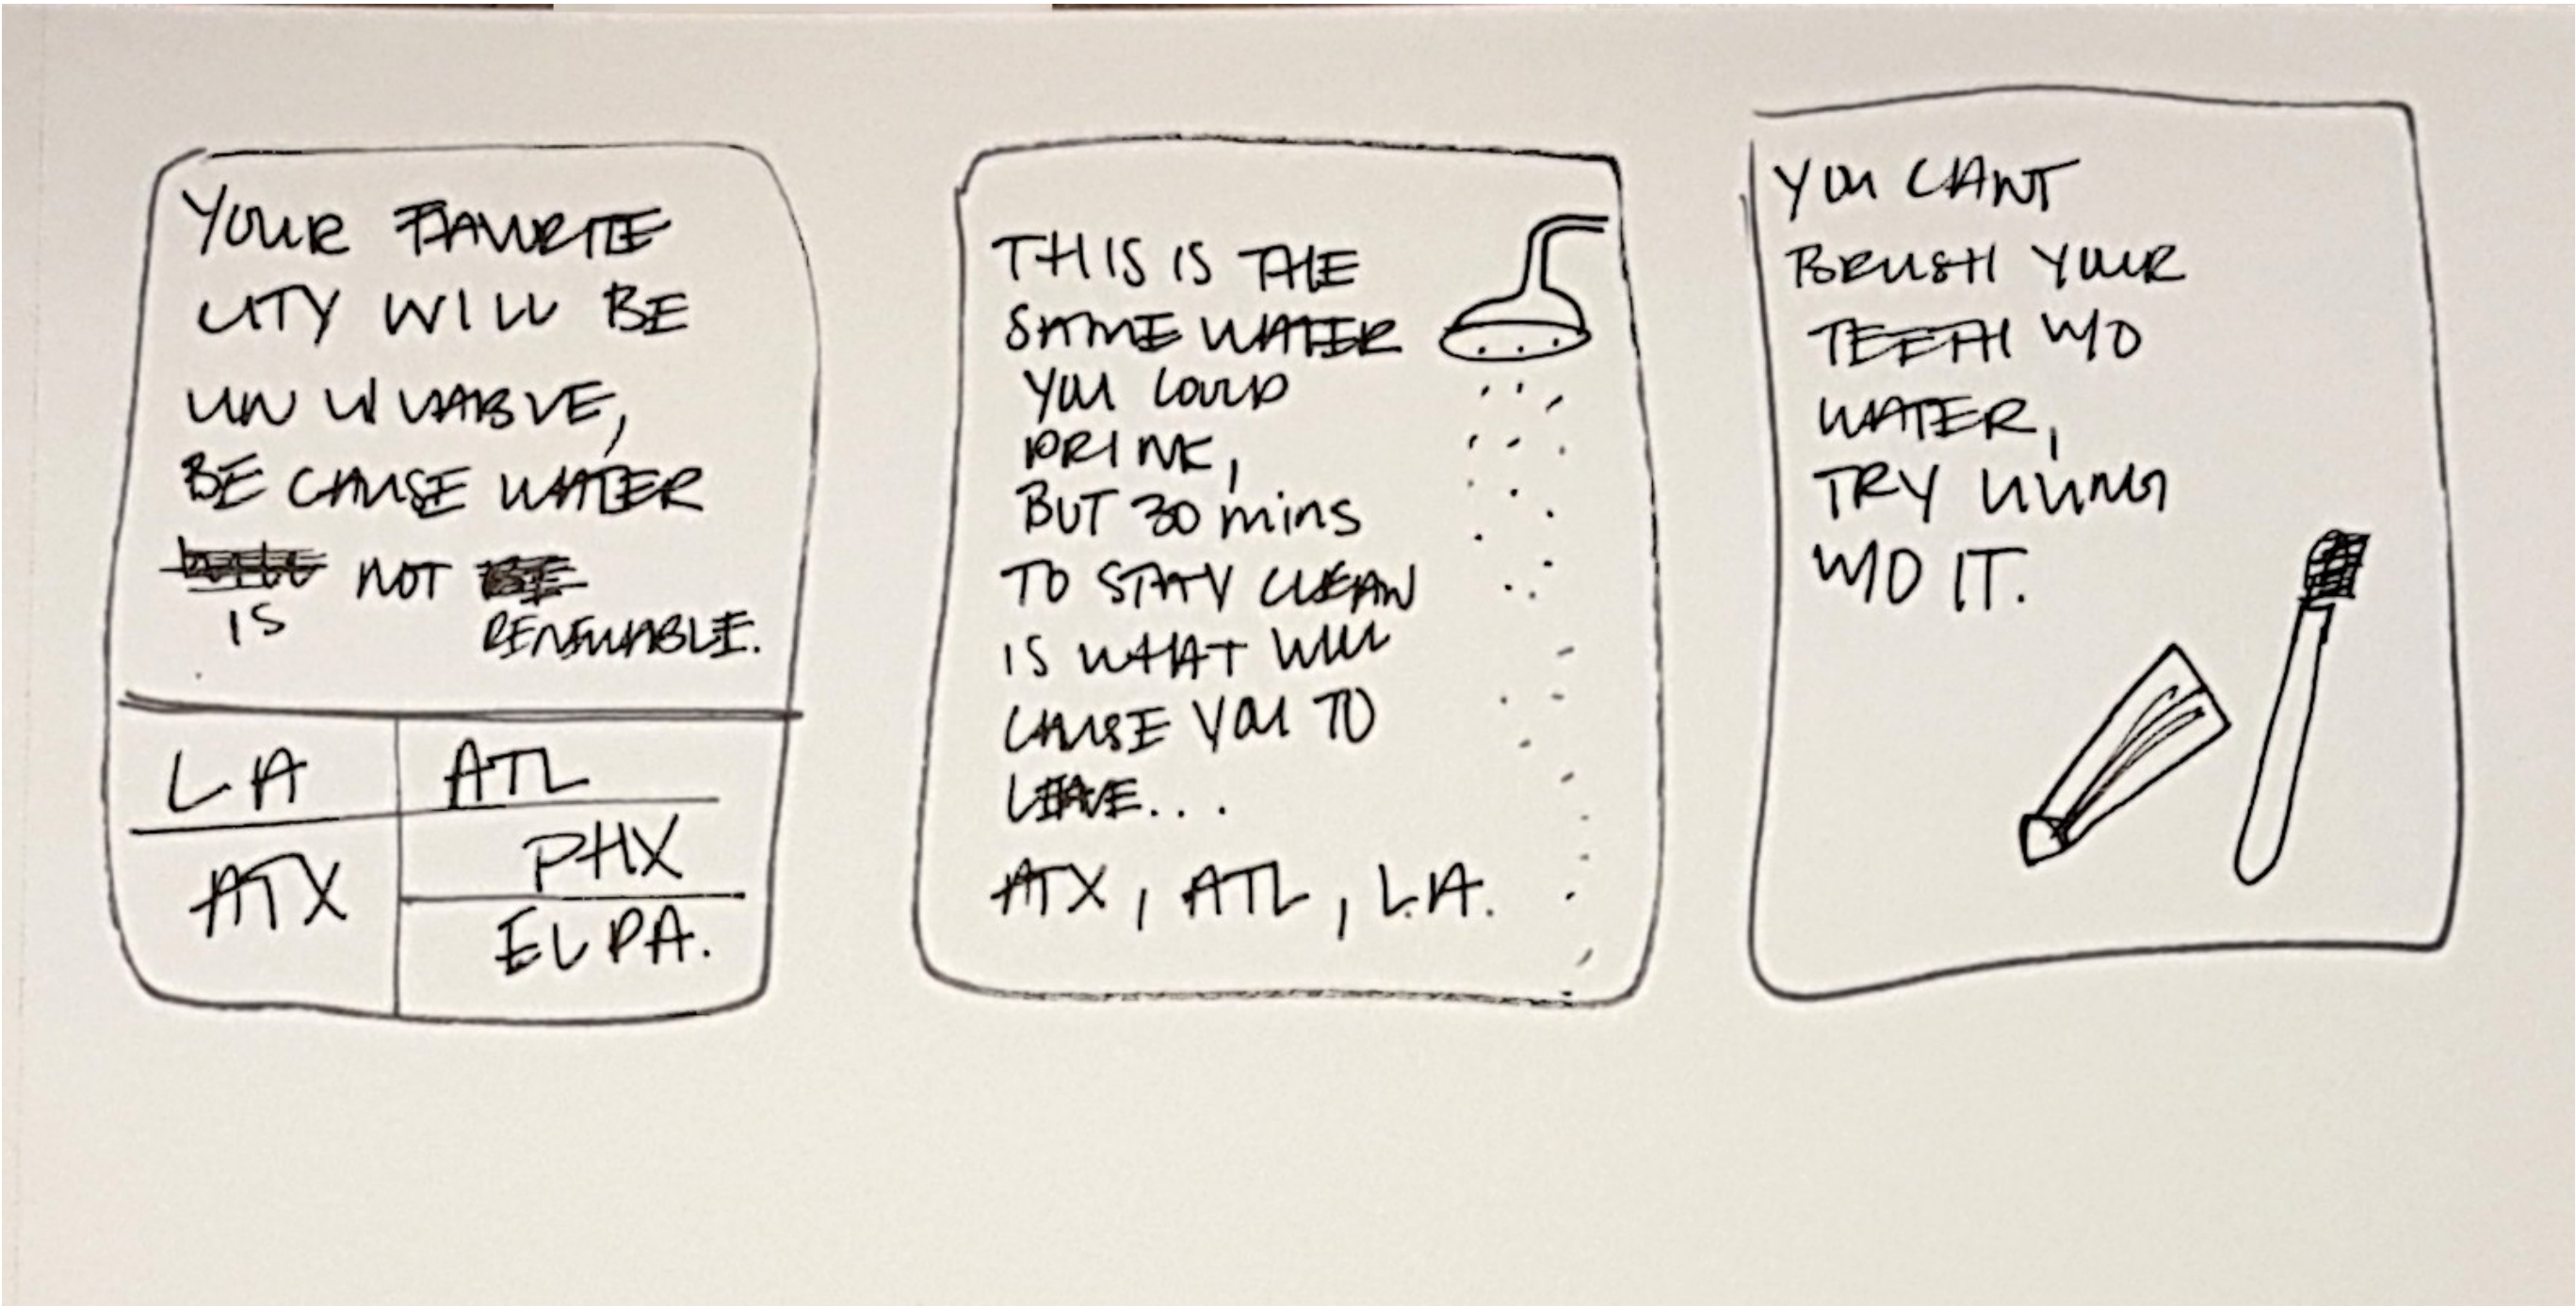 YOUR FAVORITE
CITY WILL BE
UNLIVABLE,
BECAUSE WATER
IS NOT
RENEWABLE.
LA
ATL
ATX
PHX
EL PA.
THIS IS THE
SAME WATER
YOU COULD
DRINK,
BUT 30 mins
TO STAY CLEAN
IS WHAT WILL
CAUSE YOU TO
LEAVE...
ATX, ATL, L.A.
YOU CANT
BRUSH YOUR
TEETH W/O
WATER,
TRY LIVING
W/O IT.